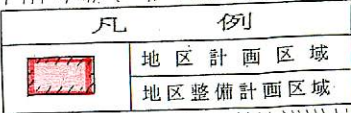 凡例
地区計画区域
地区整備計画区域